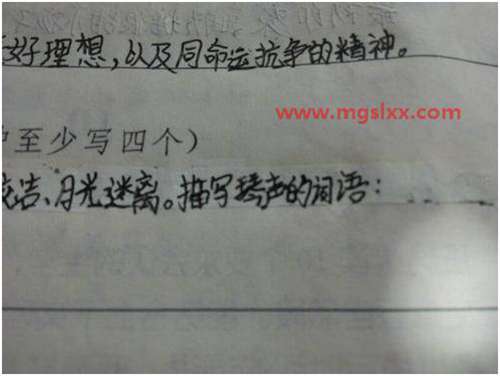 好理想,以及同命运抗争的精神。
www.mgslxx.com
至少写四个）
洁、月光迷离。描写琴声的词语：